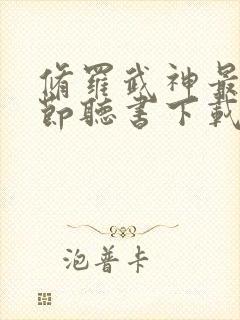 脩羅武神最
節聽書下載
泡普卡